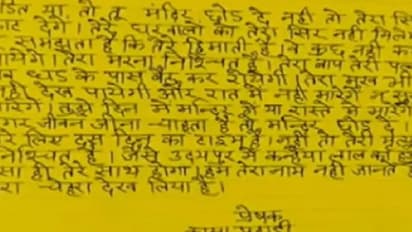 या तो तू मंदिर छोड़ दे नहीं तो तेरा सिर
काट देंगे। तेरे घर वालों को तेरा सिर नहीं मिलेगा
समझता है कि तेरे हिमाती है। वे कुछ नहीं कर
पायेंगे। तेरा मरना निश्चित है। तेरा बाप तेरी
धड़ के पास बैठ कर रोयेगी। तेरा मुख भी
नहीं देख पायेगी और रात में नहीं मारेंगे
दिन में मन्दिर में या रास्ते में
जीवन जीना चाहता है तो मन्दिर छोड़ दे।
लिए दिन का टाइम है। नहीं तो तेरी
निश्चित है। जैसे उदयपुर में कन्हैया लाल का
ही तेरे साथ होगा। हम तेरा नाम नहीं जानते है
तेरा चेहरा देख लिया है।
प्रेषक